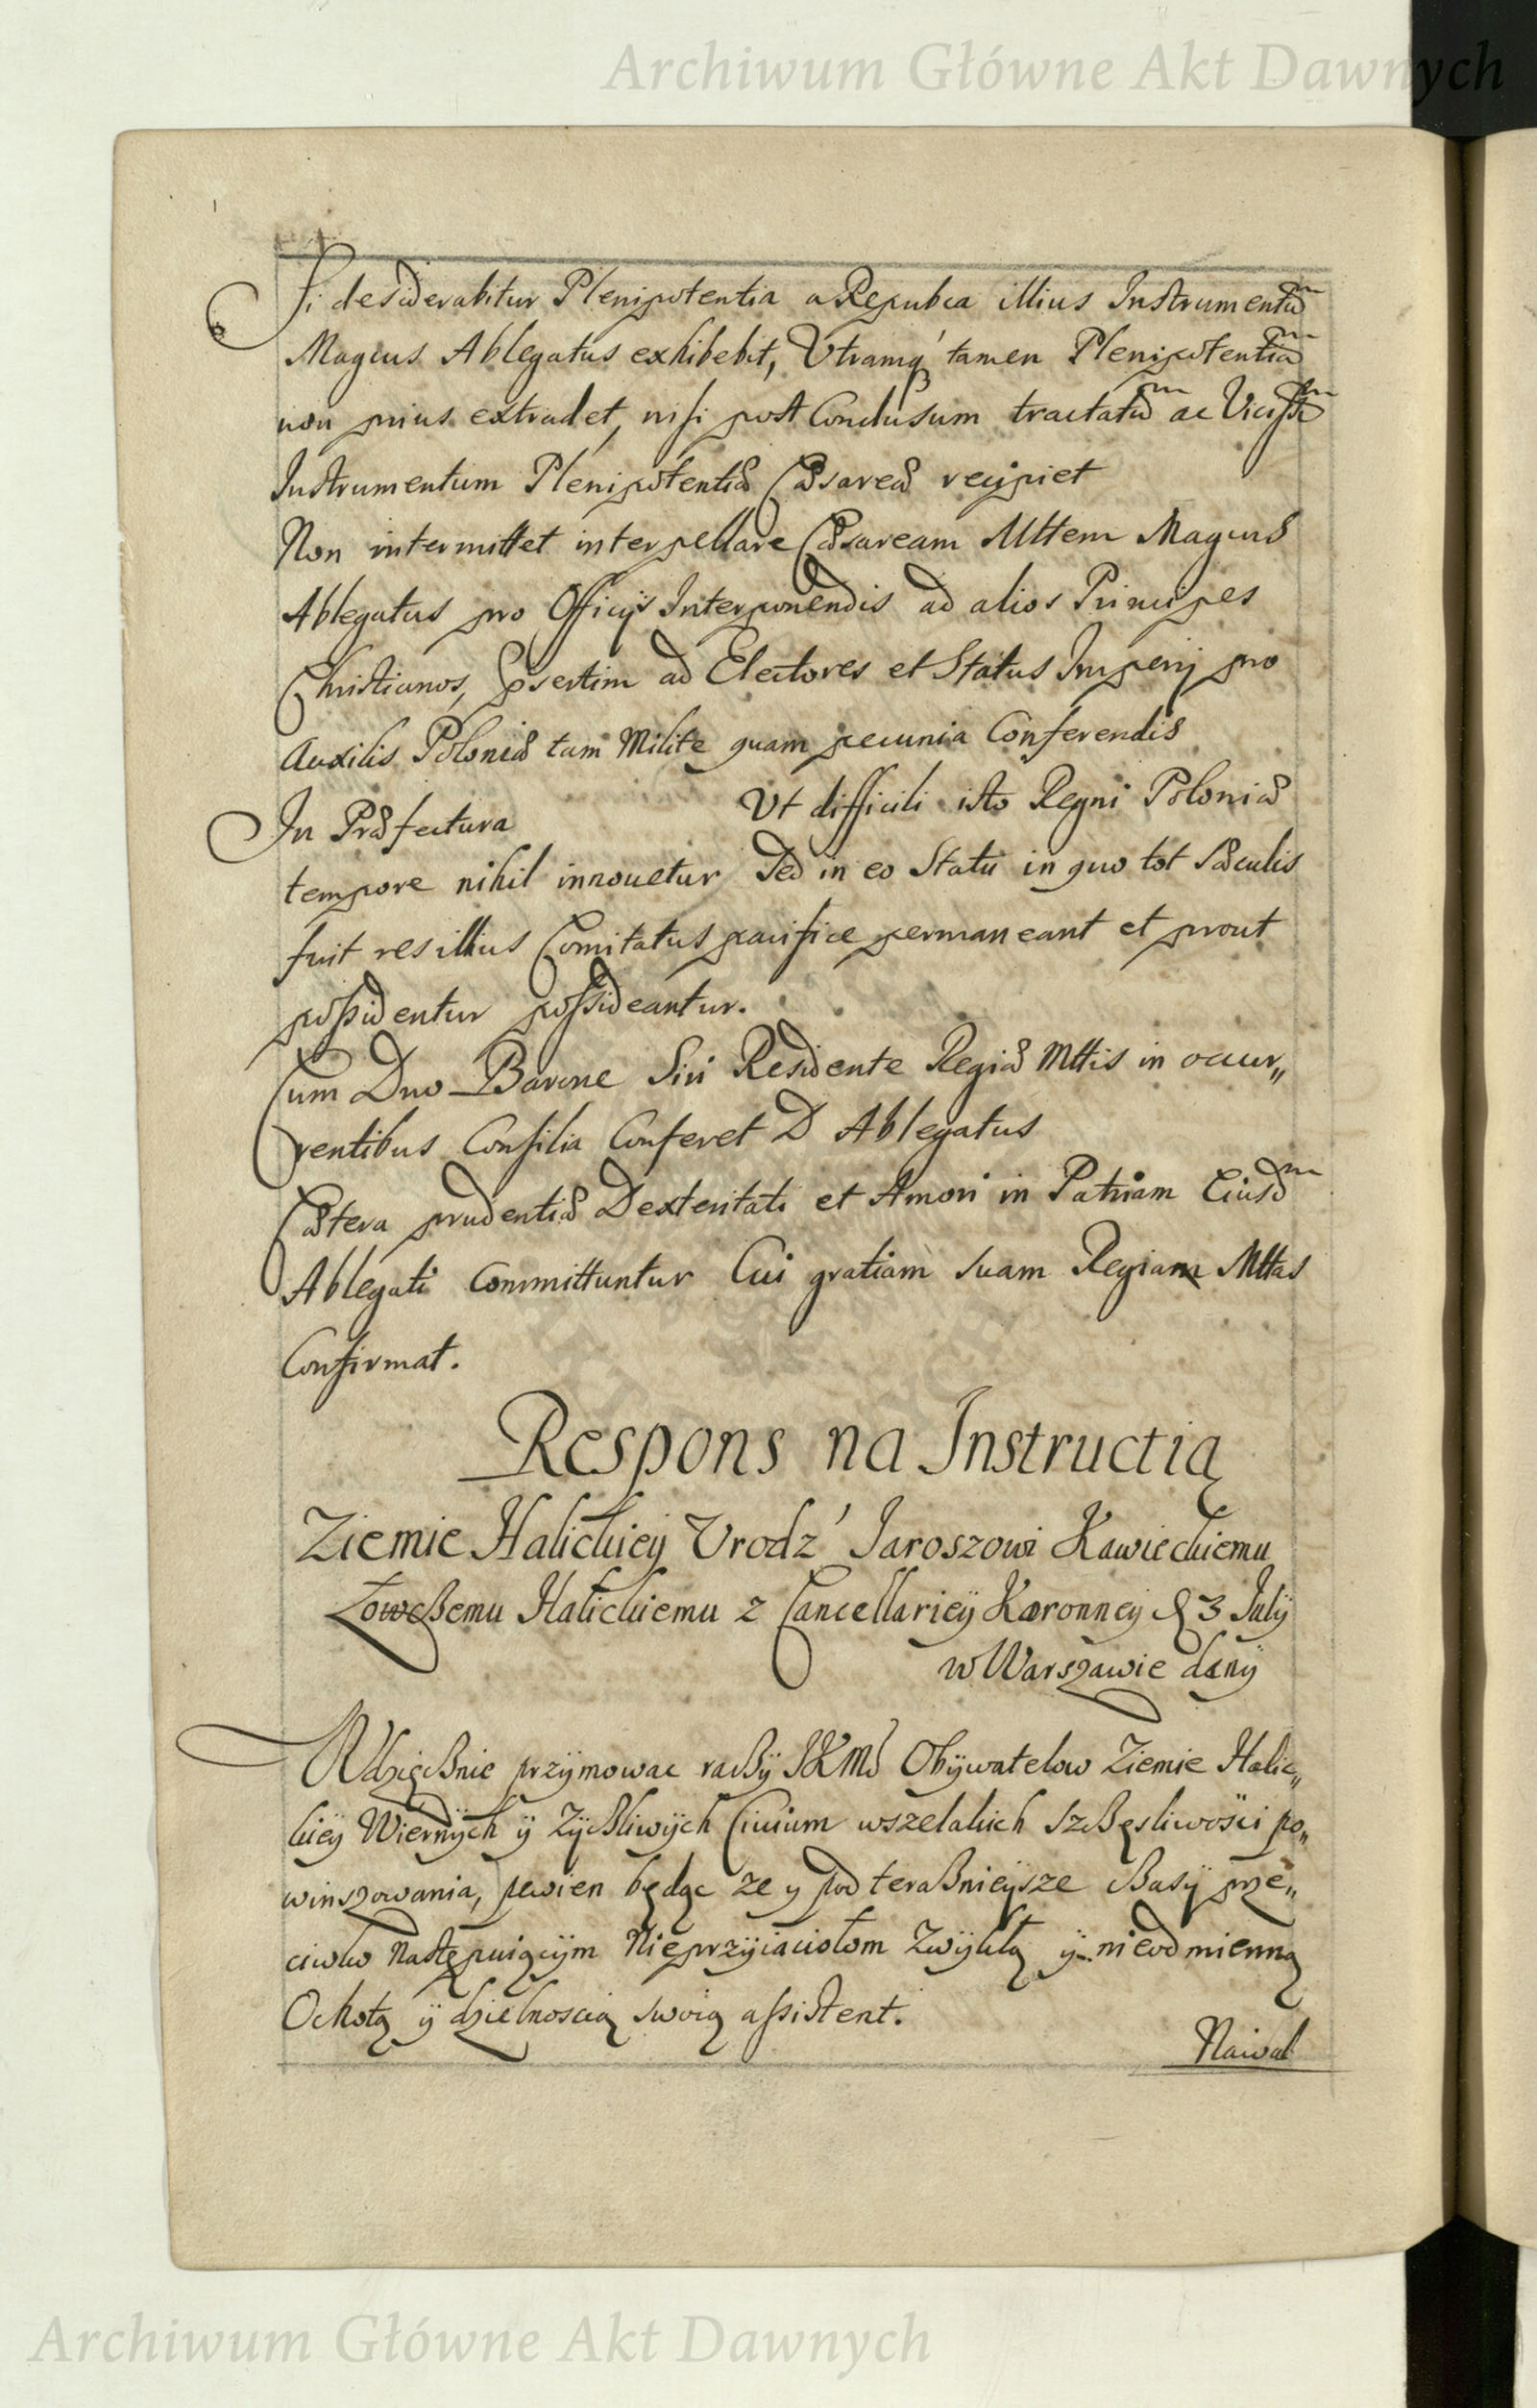 Archiwum Główne Akt Dawnych
Si desiderabitur Plenipotentia a Repubca illius Instrumentũ
Magcus Ablegatus exhibebit, Utramq́ tamen Plenipotentiã
non prius extradet, nisi post Conclusum tractatũ ac Vicissĩ
Instrumentum Plenipotentiæ Cæsareæ recipiet
Non intermittet interpellare Cæsaream Mttem Magcus
Ablegatus pro Officijs Interponendis ad alios Principes
Christianos, Psertim ad Electores et Status Imperij pro
Auxilis Poloniæ tam Milite quam pecunia Conferendis
In Præfectura Ut difficili isto Regni Poloniæ
tempore nihil innouetur Sed in eo Statu in quo tot sæculis
fuit res illius Comitatus pacifice permaneant et prout
possidentur possideantur.
Cum Dno Barone Siri Residente Regiæ Mttis in occur„
rentibus Consilia Conferet D Ablegatus
Cætera prudentiæ Dexteritati et Amori in Patriam Eiusdm
Ablegati Committuntur Cui gratiam suam Regiam Mttas
Confirmat.
Respons na Instructią
Ziemie Halickiey Vrodz' Jaroszowi Kawieckiemu
Łowcßemu Halickiemu z Cancellarieÿ Karonney d 3 Julÿ
w Warszawie danÿ
Wdzięcßnie przÿmowac racßÿ JKMć Obÿwatelow Ziemie Halic„
kieÿ Wiernÿch ÿ Zÿcßliwÿch Ciuium wszelakich szcßęsliwosci po„
winszowania, pewien będąc ze y pod teraßnieÿsze cßasÿ prze„
ciwko Następuiącÿm Nieprzÿiaciołom Zwÿkłą ÿ nieodmienną
Ochotą ÿ dzielnoscią swoią assistent.
Naiwal
Archiwum Główne Akt Dawnych